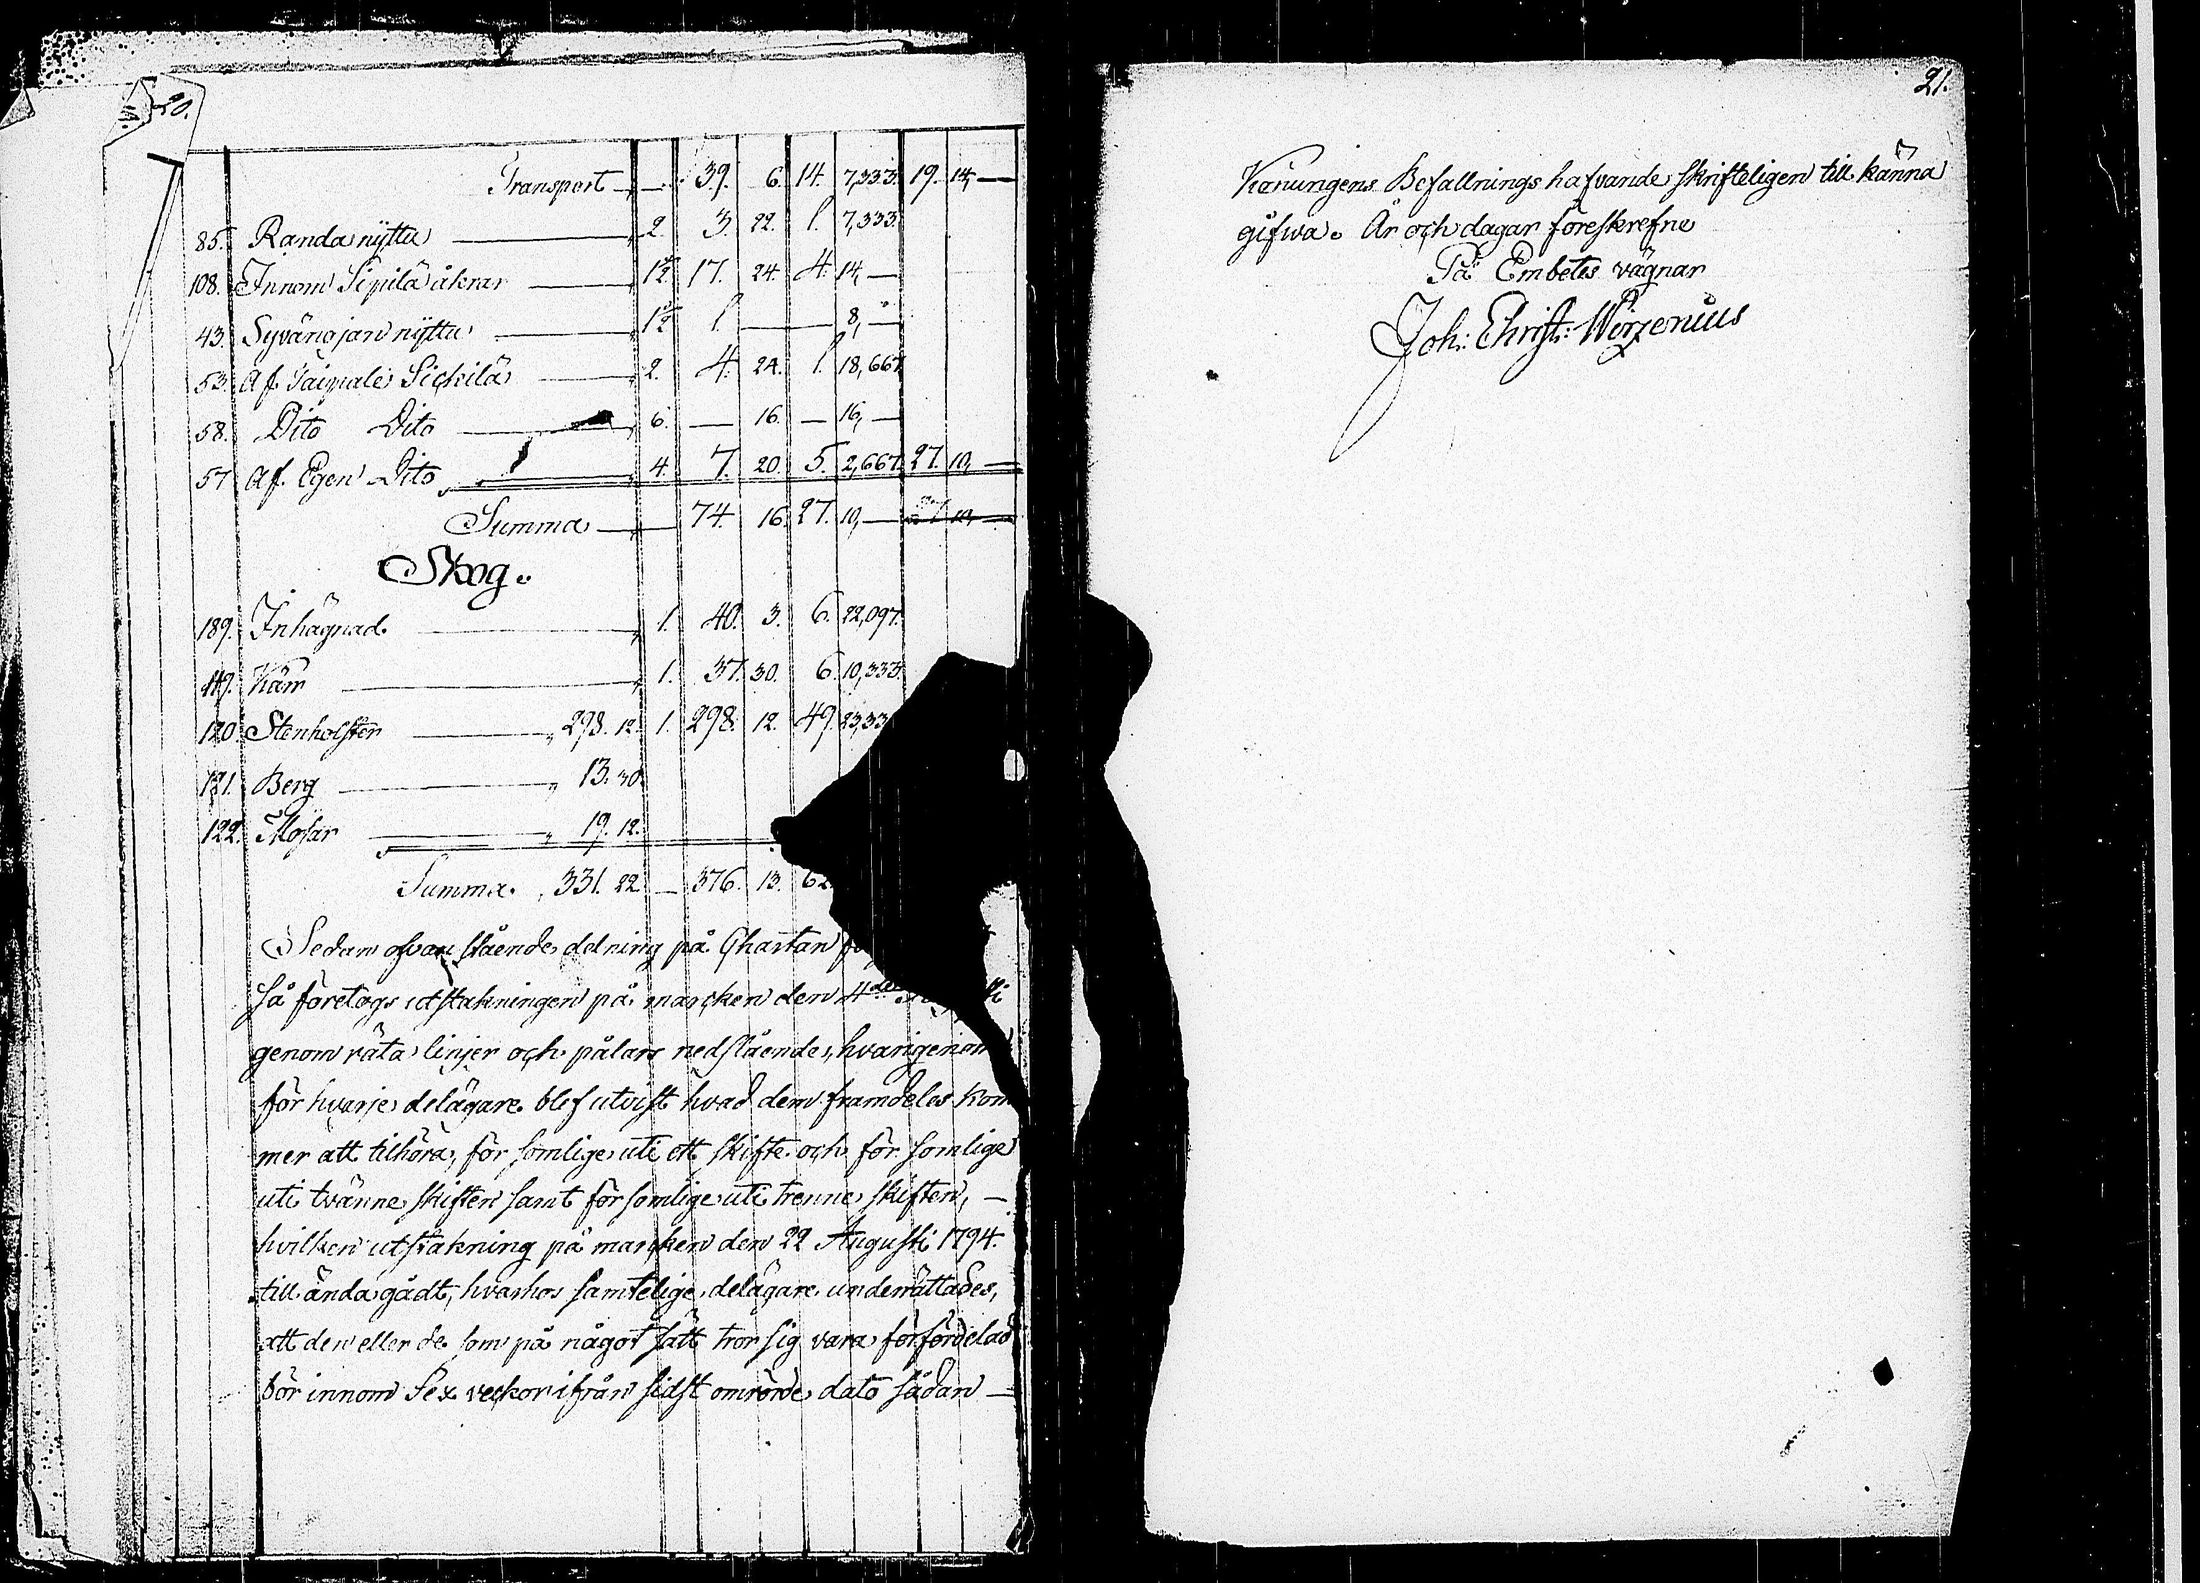 20.
Transport — 39. 6. 14. 7,333. 19. 14, —
85. Randa nyttu — 2. 3. 22. 1. 7,333.
108. Innom Sipilä åkrar — 1½ 17. 24. 4. 14, —
43. Syvänojan nyttu — 1½ 1. — 8, —
53. Af Taipale Sickilä — 2. 4. 24. 1. 18,667
58. Dito Dito — 6. — 16. — 16, —
57 Af Egen Dito 4. 7. 20. 5. 2,667. 27. 10, —
Summa — 74. 16. 27. 10, — 27 10, —
Skog.
189. Inhägnad — 1. 40. 3. 6. 22,097.
119. Kärr — 1. 37. 30. 6. 10,333.
120. Stenholster — 298. 12. 1. 298. 12. 49. 23,33
121. Berg — 13. 30.
122. Mosar — 19. 12.
Summa. 331. 22. — 376. 13. 62.
Sedan ofvan stående delning på Chartan
så företogs utstakningen på marcken den 4de
genom räta linjer och pålars nedslående, hvarigenom
för hvarje delägare blef utvist hvad dem framdeles kom
mer att tilhöra, för somlige uti ett skifte och för somlige
uti tvänne skiften samt för somlige uti trenne skiften, —
hvilken utstakning på marcken den 22 Augusti 1794.
till ända gådt, hvarhos samtelige delägare underrättades,
att den eller de som på något sätt tror sig vara förfördelad
bör innom Sex veckor ifrån sidst omrörde dato sådan —
21.
Konungens Befallningshafvande skrifteligen till känna
gifwa. År och dagar föreskrefne
På Embetes vägnar
Joh: Christ: Wirzenius